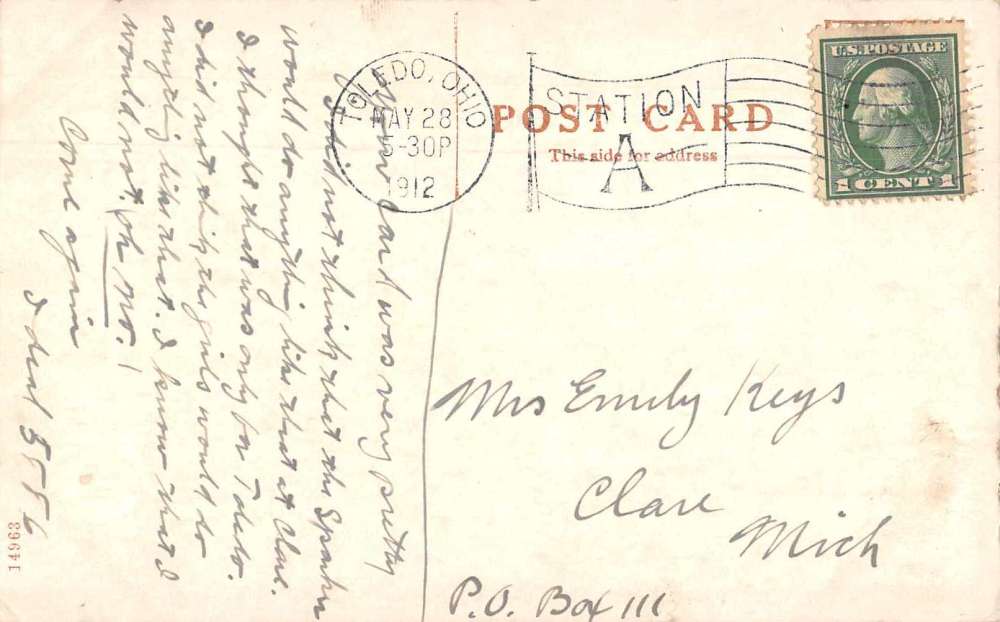 TOLEDO, OHIO
MAY 28
5-30P
1912
STATION
A
U.S. POSTAGE
1 CENT 1
POST CARD
This side for address
Card was very pretty
I did not think that the
would do anything like that at Clare.
I thought that was only for Toledo.
I did not think the girls would do
anything like that. I know that I
would not. Oh no!
Come again
I deal 5886
Mrs Emily Keys
Clare
Mich
P.O. Box 111
14963